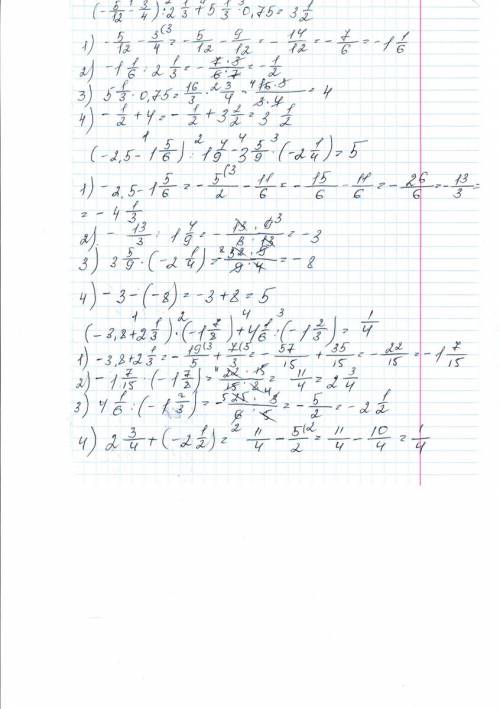 (-5/12 - 3/4) : 2 1/3 + 5 1/3 · 0,75 = 3 1/2
1) -5/12 - 3/4 = -5/12 - 9/12 = -14/12 = -7/6 = -1 1/6
2) -1 1/6 : 2 1/3 = -7·3/6·7 = -1/2
3) 5 1/3 · 0,75 = 16/3 · 3/4 = 16·3/3·4 = 4
4) -1/2 + 4 = -1/2 + 3 2/2 = 3 1/2
(-2,5 - 1 5/6) : 1 4/9 - 3 5/9 · (-2 1/4) = 5
1) -2,5 - 1 5/6 = -5/2 - 11/6 = -15/6 - 11/6 = -26/6 = -13/3 =
= -4 1/3
2) -13/3 : 1 4/9 = -13·9/3·13 = -3
3) 3 5/9 · (-2 1/4) = -32·9/9·4 = -8
4) -3 - (-8) = -3 + 8 = 5
(-3,8 + 2 1/3) · (-1 7/8) + 4 1/6 : (-1 2/3) = 1/4
1) -3,8 + 2 1/3 = -19/5 + 7/3 = -57/15 + 35/15 = -22/15 = -1 7/15
2) -1 7/15 · (-1 7/8) = 22·15/15·8 = 11/4 = 2 3/4
3) 4 1/6 : (-1 2/3) = -25·3/6·5 = -5/2 = -2 1/2
4) 2 3/4 + (-2 1/2) = 11/4 - 5/2 = 11/4 - 10/4 = 1/4